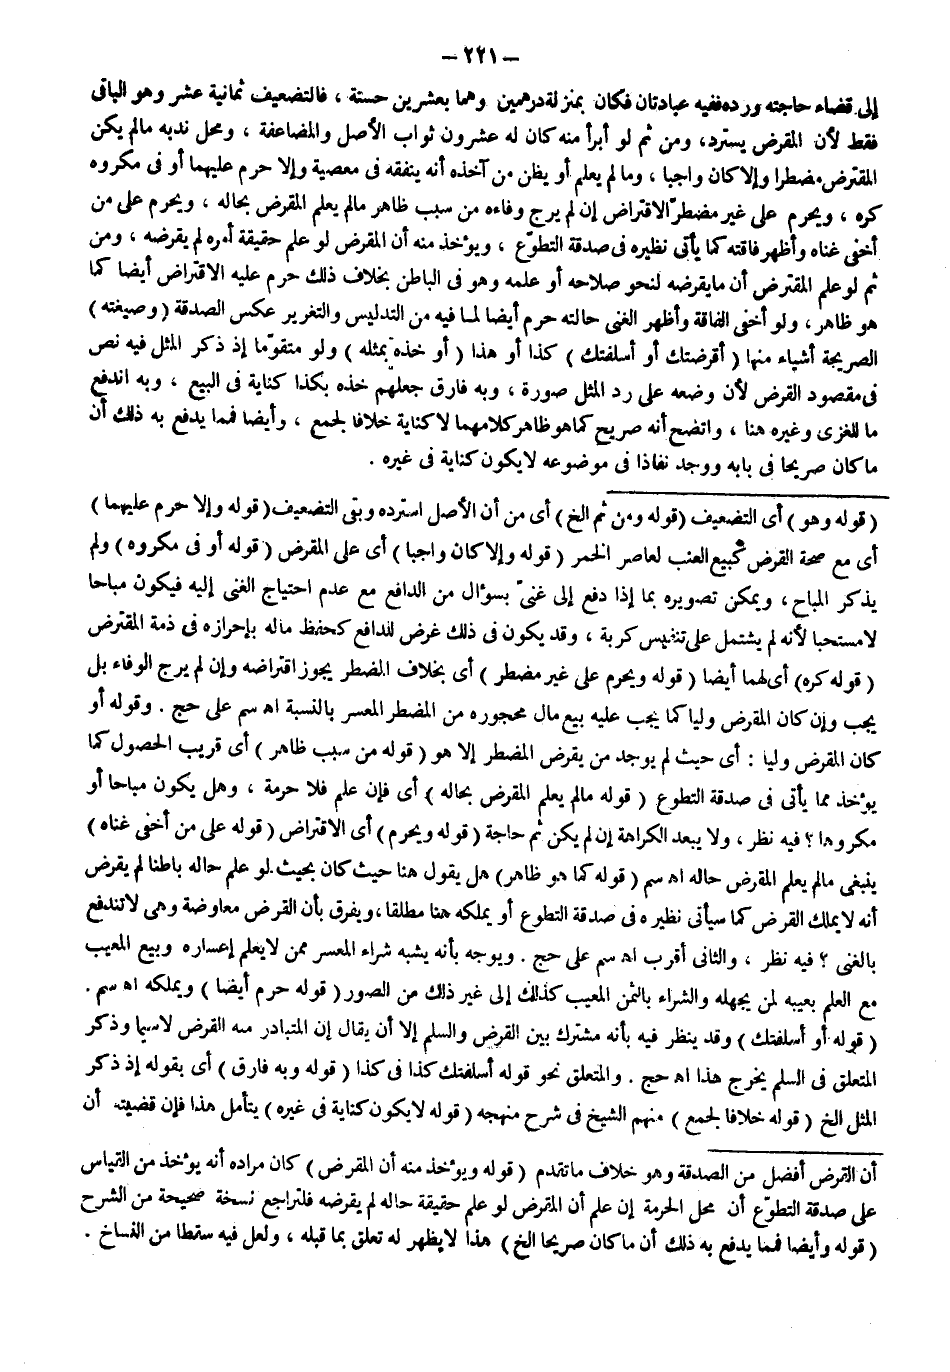 – ٢٢١ –
إلى قضاء حاجته ورده ففيه عبادتان فكان بمنزلة درهمين وهما بعشرين حسنة ، فالتضعيف ثمانية عشر وهو الباقى
فقط لأن المقرض يسترد، ومن ثم لو أبرأ منه كان له عشرون ثواب الأصل والمضاعفة ، ومحل ندبه مالم يكن
المقترض مضطرا وإلا كان واجبا ، وما لم يعلم أو يظن من آخذه أنه ينفقه فى معصية وإلا حرم عليهما أو فى مكروه
كره ، ويحرم على غير مضطرّ الاقتراض إن لم يرج وفاءه من سبب ظاهر مالم يعلم المقرض بحاله ، ويحرم على من
أخفى غناه وأظهر فاقته كما يأتى نظيره فى صدقة التطوّع ، ويؤخذ منه أن المقرض لو علم حقيقة أمره لم يقرضه ، ومن
ثم لو علم المقترض أن مايقرضه لنحو صلاحه أو علمه وهو فى الباطن بخلاف ذلك حرم عليه الاقتراض أيضا كما
هو ظاهر، ولو أخفى الفاقة وأظهر الغنى حالته حرم أيضا لما فيه من التدليس والتغرير عكس الصدقة ( وصيغته )
الصريحة أشياء منها ( أقرضتك أو أسلفتك ) كذا أو هذا ( أو خذه بمثله ) ولو متقوّما إذ ذكر المثل فيه نص
فى مقصود القرض لأن وضعه على رد المثل صورة ، وبه فارق جعلهم خذه بكذا كناية فى البيع ، وبه اندفع
ما للغزى وغيره هنا ، واتضح أنه صريح كما هو ظاهر كلامهما لا كناية خلافا لجمع ، وأيضا فمما يدفع به ذلك أن
ما كان صريحا فى بابه ووجد نفاذا فى موضوعه لايكون كناية فى غيره .
( قوله وهو ) أى التضعيف ( قوله ومن ثم الخ ) أى من أن الأصل استرده وبقى التضعيف ( قوله وإلا حرم عليهما )
أى مع صحة القرض كبيع العنب لعاصر الخمر ( قوله وإلا كان واجبا ) أى على المقرض ( قوله أو فى مكروه ) ولم
يذكر المباح ، ويمكن تصويره بما إذا دفع إلى غنىّ بسؤال من الدافع مع عدم احتياج الغنى إليه فيكون مباحا
لامستحبا لأنه لم يشتمل على تنفيس كربة ، وقد يكون فى ذلك غرض للدافع كحفظ ماله بإحرازه فى ذمة المقترض
( قوله كره ) أى لهما أيضا ( قوله ويحرم على غير مضطر ) أى بخلاف المضطر يجوز اقتراضه وإن لم يرج الوفاء بل
يجب وإن كان المقرض وليا كما يجب عليه بيع مال محجوره من المضطر المعسر بالنسبة اه سم على حج . وقوله أو
كان المقرض وليا : أى حيث لم يوجد من يقرض المضطر إلا هو ( قوله من سبب ظاهر ) أى قريب الحصول كما
يؤخذ مما يأتى فى صدقة التطوع ( قوله مالم يعلم المقرض بحاله ) أى فإن علم فلا حرمة ، وهل يكون مباحا أو
مكروها ؟ فيه نظر ، ولا يبعد الكراهة إن لم يكن ثم حاجة ( قوله ويحرم ) أى الاقتراض ( قوله على من أخفى غناه )
ينبغى مالم يعلم المقرض حاله اه سم ( قوله كما هو ظاهر ) هل يقول هنا حيث كان بحيث لو علم حاله باطنا لم يقرض
أنه لايملك القرض كما سيأتى نظيره فى صدقة التطوع أو يملكه هنا مطلقا ، ويفرق بأن القرض معاوضة وهى لاتندفع
بالغنى ؟ فيه نظر ، والثانى أقرب اه سم على حج . ويوجه بأنه يشبه شراء المعسر ممن لايعلم إعساره وبيع المعيب
مع العلم بعيبه لمن يجهله والشراء بالثمن المعيب كذلك إلى غير ذلك من الصور ( قوله حرم أيضا ) ويملكه اه سم .
( قوله أو أسلفتك ) وقد ينظر فيه بأنه مشترك بين القرض والسلم إلا أن يقال إن المتبادر منه القرض لاسيما وذكر
المتعلق فى السلم يخرج هذا اه حج . والمتعلق نحو قوله أسلفتك كذا فى كذا ( قوله وبه فارق ) أى بقوله إذ ذكر
المثل الخ ( قوله خلافا لجمع ) منهم الشيخ فى شرح منهجه ( قوله لايكون كناية فى غيره ) يتأمل هذا فإن قضيته أن
أن القرض أفضل من الصدقة وهو خلاف ماتقدم ( قوله ويؤخذ منه أن المقرض ) كان مراده أنه يؤخذ من القياس
على صدقة التطوّع أن محل الحرمة إن علم أن المقرض لو علم حقيقة حاله لم يقرضه فلتراجع نسخة صحيحة من الشرح
( قوله وأيضا فمما يدفع به ذلك أن ما كان صريحا الخ ) هذا لايظهر له تعلق بما قبله ، ولعل فيه سقطا من النساخ .